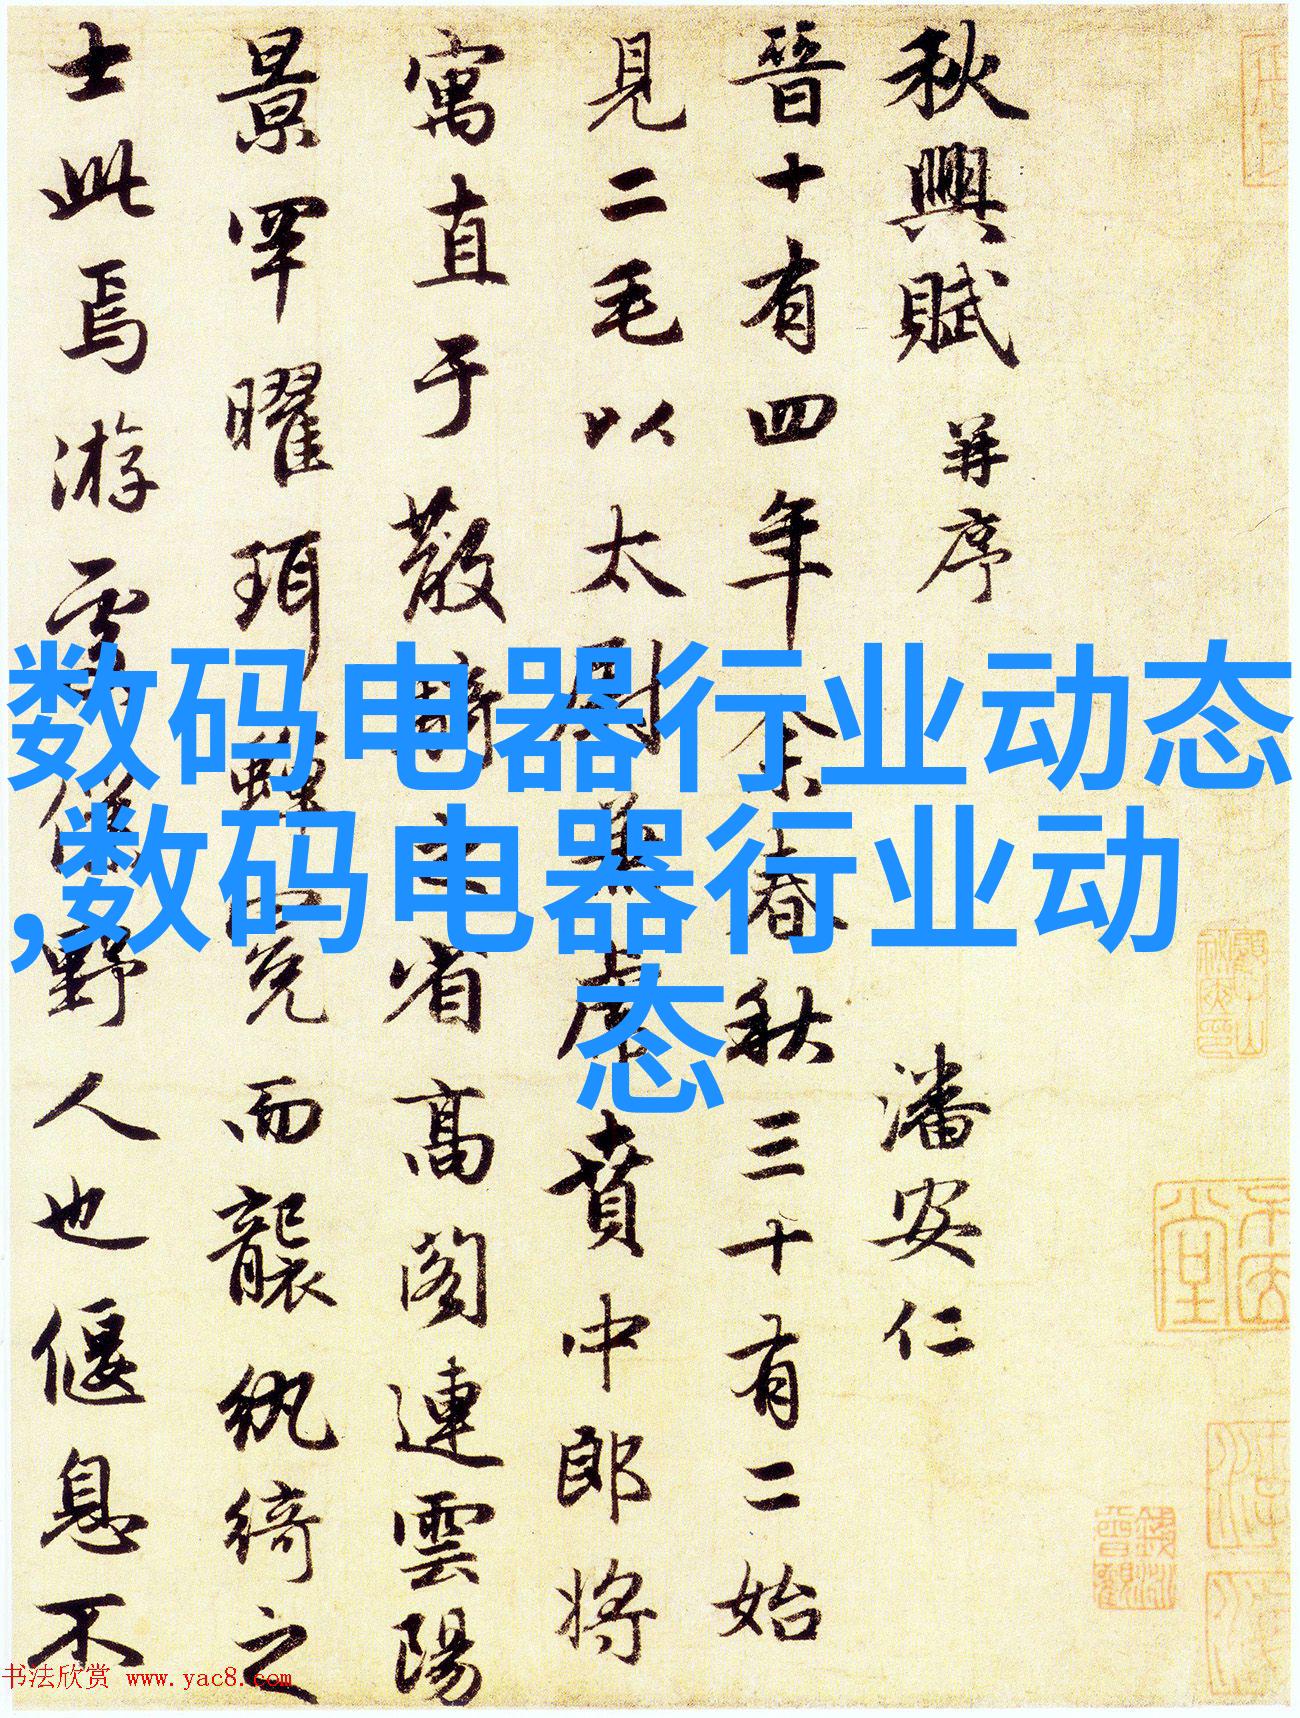 秋興賦 并序 潘安仁
晉十有四年余春秋三十有二始
見二毛以太尉兼虎賁中郎将
寓直于散騎之省高閣連雲陽
景罕曜珥蟬冕而襲紈綺之
士此焉游處僕野人也偃息不
数码电器行业动态
,数码电器行业动
态
书法欣赏 www.yac8.com